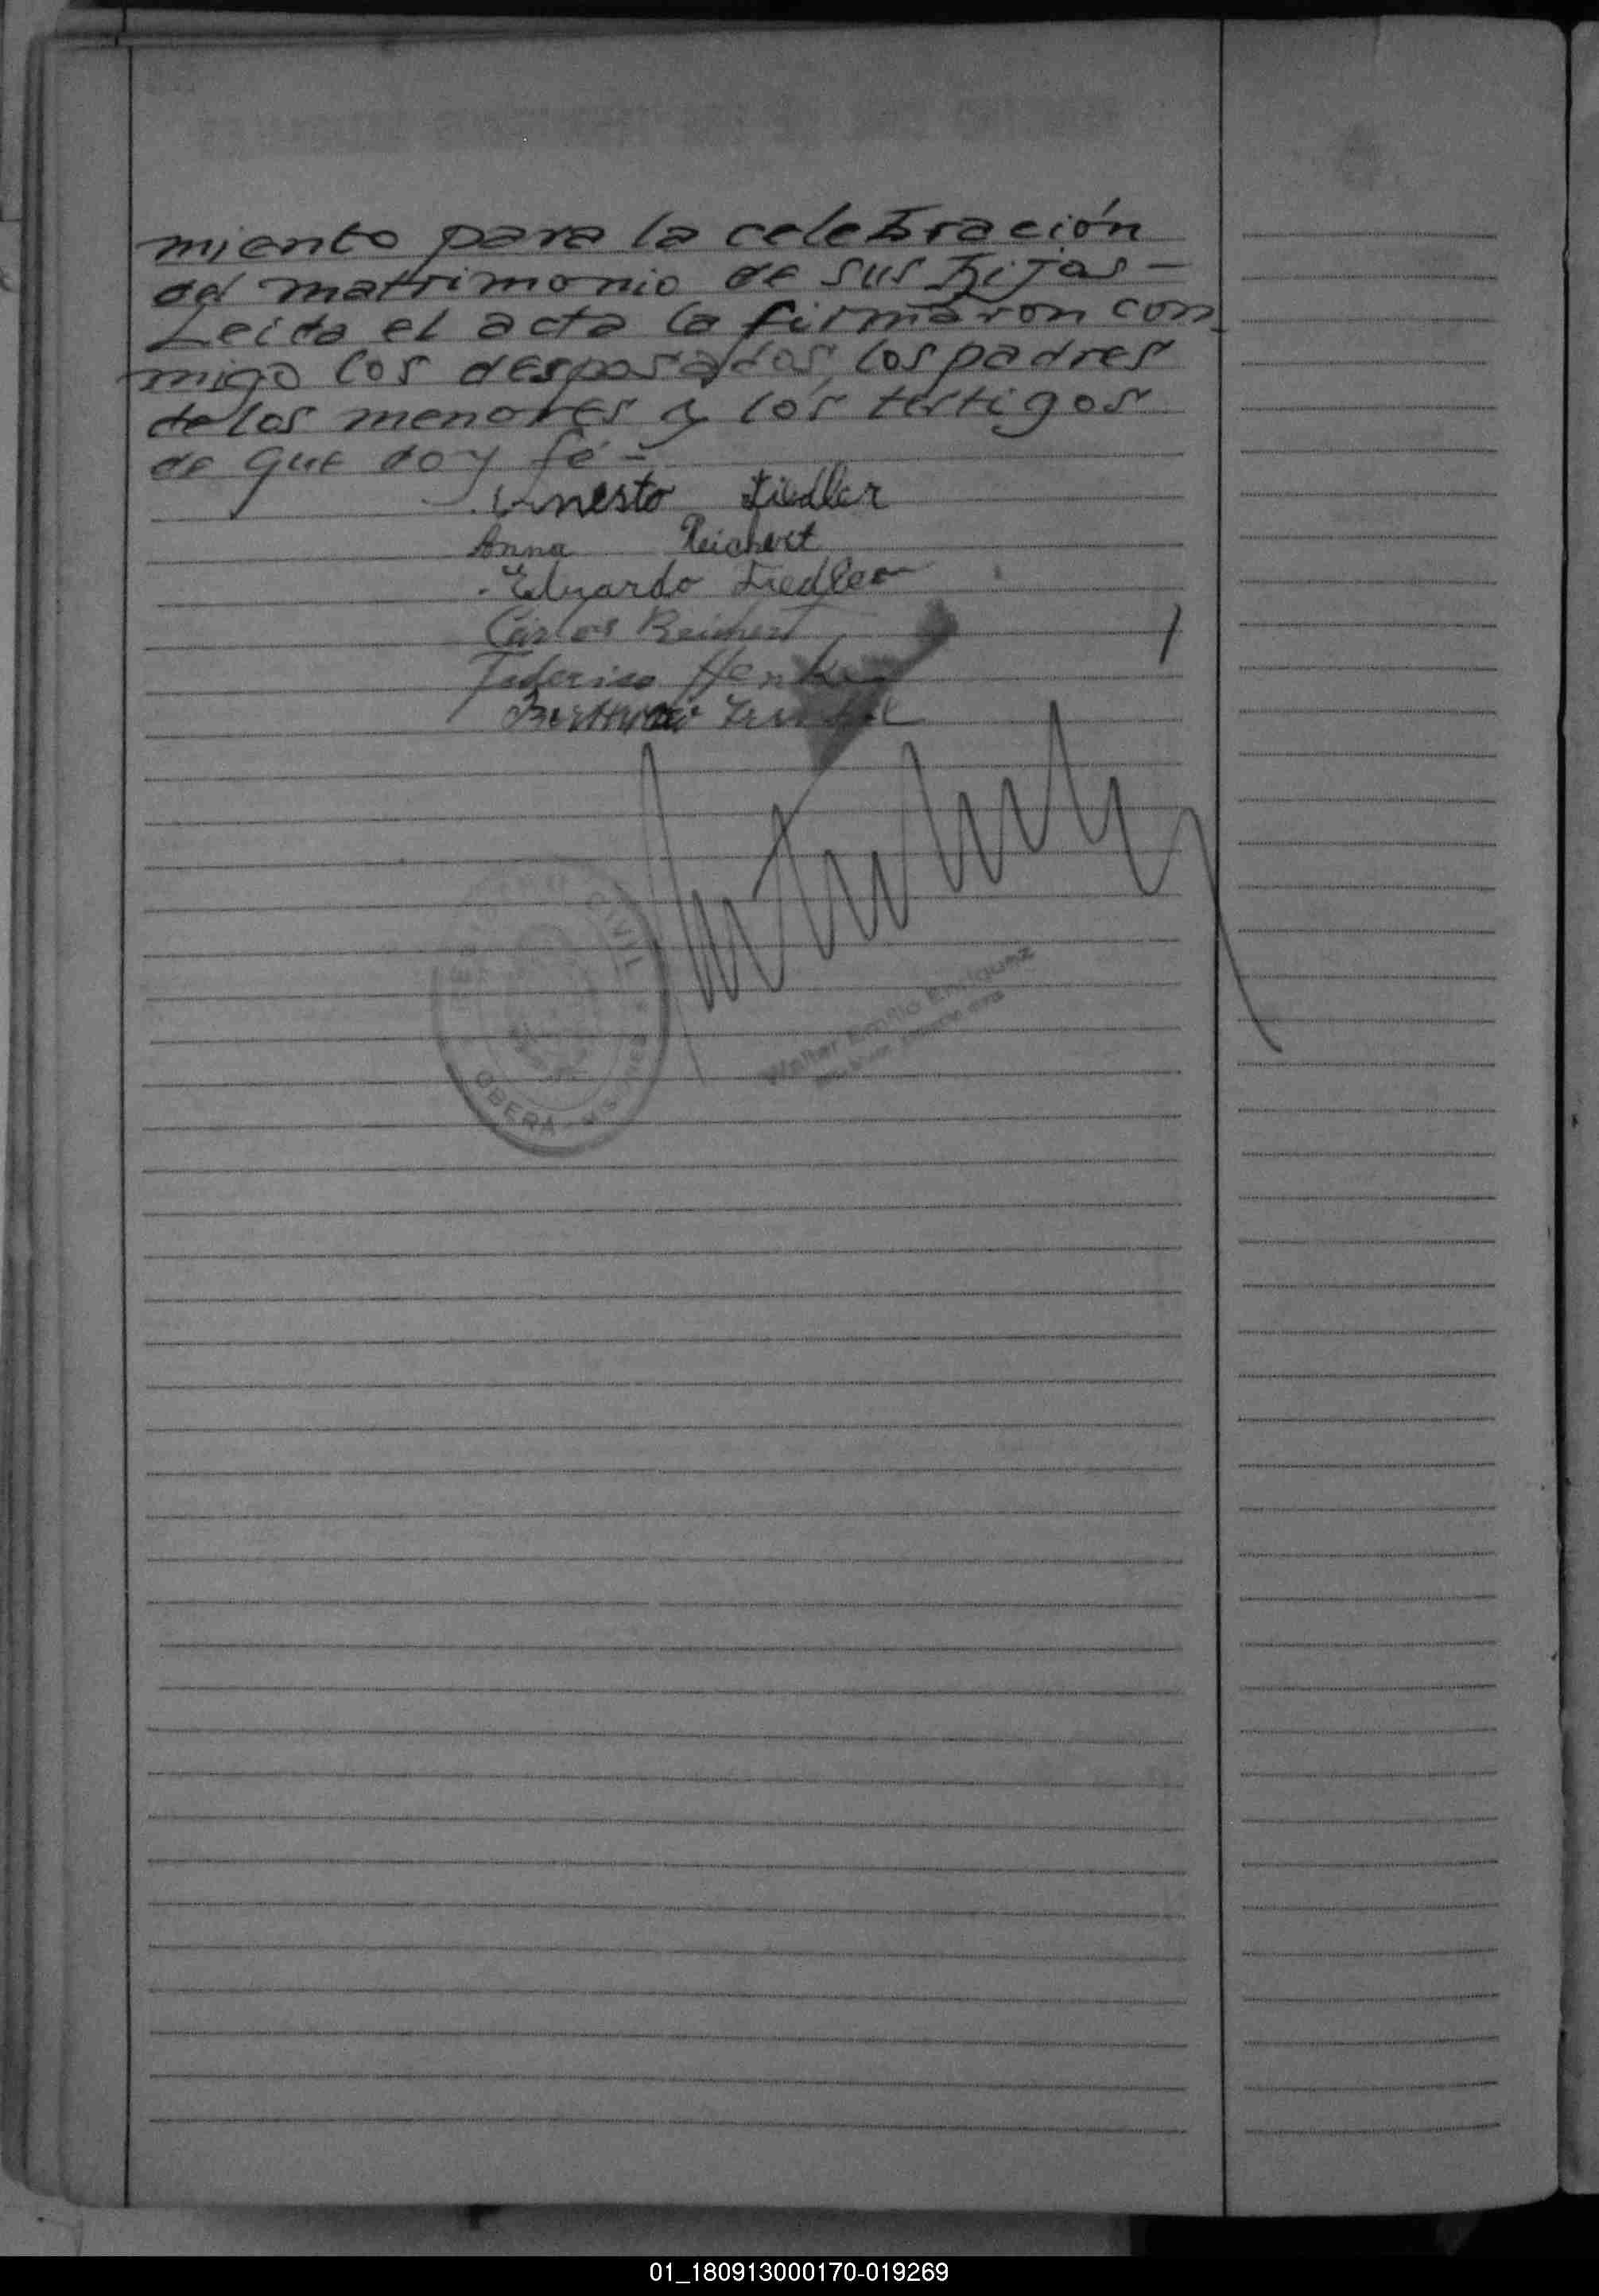 miento para la celebración
del matrimonio de sus hijos -
Leida el acta la firmaron con
migo los desposados, los padres
de los menores y los testigos
de que doy fé -
Ernesto Fiedler
Anna Reichert
Eduardo Fiedler
Carlos Reichert
Federico Henke
REGISTRO CIVIL
OBERA
Walter Emilio Enriquez
01_180913000170-019269